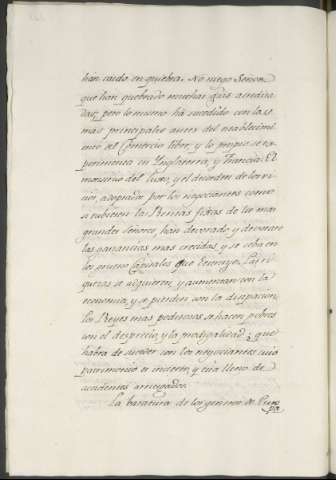 han caido en quiebra. No niego Señor
que han quebrado muchas casas acreditadas
pero lo mismo há sucedido con las
mas principales antes del establecimi
ento del Comercio libre, y lo propio se ex
perimenta en Ynglaterra, y Francia. El
monstruo del luxo, y el desorden de los vi
cios, adoptados por los negociantes como
si tubiesen las Rentas fixas de los mas
grandes Señores, han devorado, y devoraran
las ganancias mas crecidas, y se ceba en
los mismos Capitales que destruye. Las ri
quezas se adquieren, y aumentan con la
economia, y se pierden con la disipacion,
los Reyes mas poderosos se hacen pobres
con el desprecio, y la prodigalidad; que
habra de suceder con los negociantes cuio
patrimonio es incierto, y está lleno de
accidentes arriesgados.
La baratura de los generos de Euro
pa